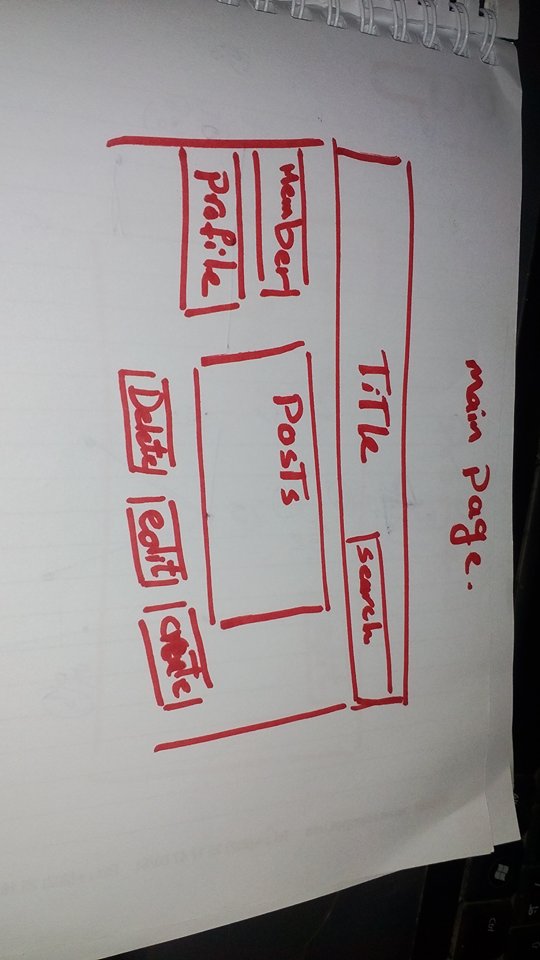 main page.
Title
search
Member
Profile
Posts
Delete
edit
create